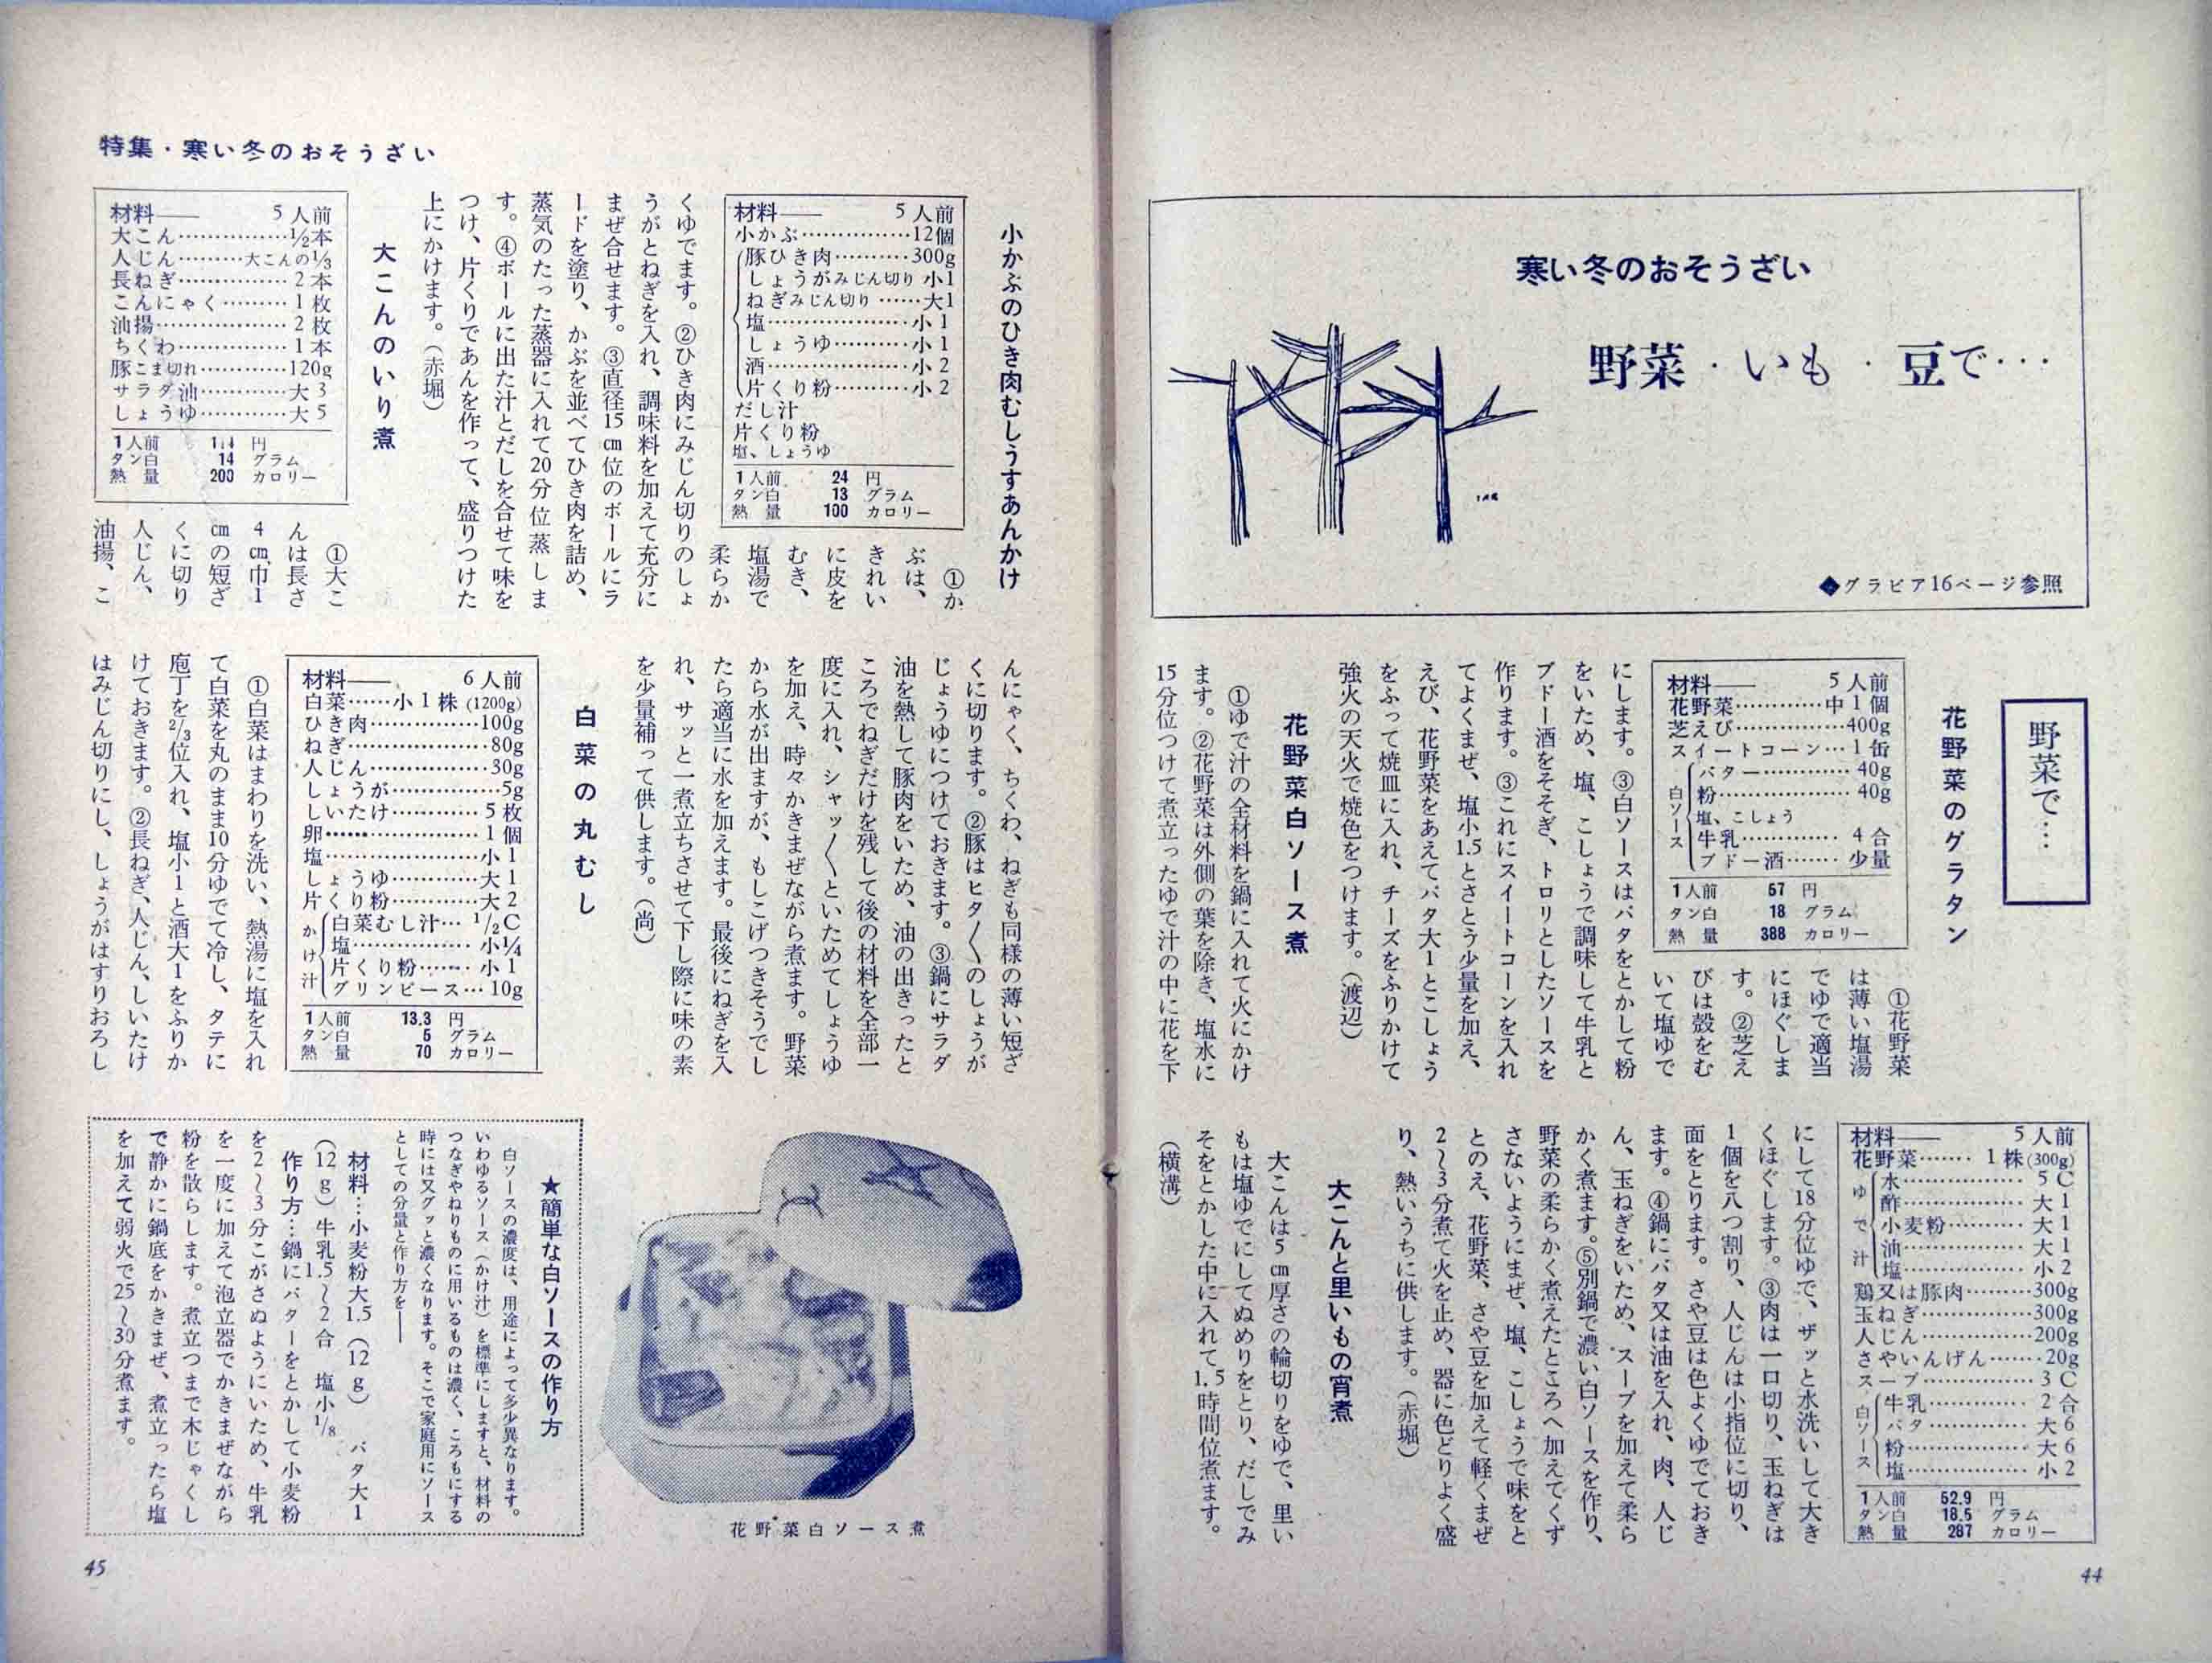 寒い冬のおそうざい
野菜・いも・豆で…
◆グラビア16ページ参照
野菜で…
花野菜のグラタン
材料―― 5人前
花野菜…………中1個
芝えび……………400g
スイートコーン…1缶
白ソース
バター…………40g
粉………………40g
塩、こしょう
牛乳……………4合
ブドー酒………少量
1人前 67 円
タン白 18 グラム
熱量 388 カロリー
①花野菜
は薄い塩湯
でゆで適当
にほぐしま
す。②芝え
びは殻をむ
いて塩ゆで
にします。③白ソースはバタをとかして粉
をいため、塩、こしょうで調味して牛乳と
ブドー酒をそそぎ、トロリとしたソースを
作ります。③これにスイートコーンを入れ
てよくまぜ、塩小1.5とさとう少量を加え、
えび、花野菜をあえてバタ大1とこしょう
をふって焼皿に入れ、チーズをふりかけて
強火の天火で焼色をつけます。（渡辺）
花野菜白ソース煮
①ゆで汁の全材料を鍋に入れて火にかけ
ます。②花野菜は外側の葉を除き、塩水に
15分位つけて煮立ったゆで汁の中に花を下
材料―― 5人前
花野菜……1株(300g)
ゆで汁
水………………5C
酢………………大1
小麦粉…………大1
油………………大1
塩………………小2
鶏又は豚肉………300g
玉ねぎ……………300g
人じん……………200g
さやいんげん……20g
スープ……………3C
白ソース
牛乳……………2合
バタ……………大6
粉………………大6
塩………………小2
1人前 52.9 円
タン白 18.5 グラム
熱量 287 カロリー
にして18分位ゆで、ザッと水洗いして大き
くほぐします。③肉は一口切り、玉ねぎは
1個を八つ割り、人じんは小指位に切り、
面をとります。さや豆は色よくゆでておき
ます。④鍋にバタ又は油を入れ、肉、人じ
ん、玉ねぎをいため、スープを加えて柔ら
かく煮ます。⑤別鍋で濃い白ソースを作り、
野菜の柔らかく煮えたところへ加えてくず
さないようにまぜ、塩、こしょうで味をと
とのえ、花野菜、さや豆を加えて軽くまぜ
2〜3分煮て火を止め、器に色どりよく盛
り、熱いうちに供します。（赤堀）
大こんと里いもの宵煮
大こんは5cm厚さの輪切りをゆで、里い
もは塩ゆでにしてぬめりをとり、だしでみ
そをとかした中に入れて1.5時間位煮ます。
（横溝）
44
特集・寒い冬のおそうざい
小かぶのひき肉むしうすあんかけ
材料―― 5人前
小かぶ……………12個
豚ひき肉…………300g
しょうがみじん切り 小1
ねぎみじん切り……大1
塩…………………小1
しょうゆ…………小1
酒…………………小2
片くり粉…………小2
だし汁
片くり粉
塩、しょうゆ
1人前 24 円
タン白 13 グラム
熱量 100 カロリー
①か
ぶは、
きれい
に皮を
むき、
塩湯で
柔らか
くゆでます。②ひき肉にみじん切りのしょ
うがとねぎを入れ、調味料を加えて充分に
まぜ合せます。③直径15cm位のボールにラ
ードを塗り、かぶを並べてひき肉を詰め、
蒸気のたった蒸器に入れて20分位蒸しま
す。④ボールに出た汁とだしを合せて味を
つけ、片くりであんを作って、盛りつけた
上にかけます。（赤堀）
大こんのいり煮
材料―― 5人前
大こん……………½本
人じん………大こんの⅓
長ねぎ……………2本
こんにゃく………1枚
油揚………………2枚
ちくわ……………1本
豚こま切れ………120g
サラダ油…………大3
しょうゆ…………大5
1人前 円
タン白 14 グラム
熱量 200 カロリー
①大こ
んは長さ
4cm、巾1
cmの短ざ
くに切り
人じん、
油揚、こ
んにゃく、ちくわ、ねぎも同様の薄い短ざ
くに切ります。②豚はヒタ〱のしょうが
じょうゆにつけておきます。③鍋にサラダ
油を熱して豚肉をいため、油の出きったと
ころでねぎだけを残して後の材料を全部一
度に入れ、シャッ〱といためてしょうゆ
を加え、時々かきまぜながら煮ます。野菜
から水が出ますが、もしこげつきそうでし
たら適当に水を加えます。最後にねぎを入
れ、サッと一煮立ちさせて下し際に味の素
を少量補って供します。（尚）
白菜の丸むし
材料―― 6人前
白菜……小1株(1200g)
ひき肉……………100g
ねぎ………………80g
人じん……………30g
しょうが…………5g
しいたけ…………5枚
卵…………………1個
塩…………………小1
しょうゆ…………大1
片くり粉…………大2
かけ汁
白菜むし汁…½C
塩……………小¼
片くり粉……小1
グリンピース…10g
1人前 13.3 円
タン白 5 グラム
熱量 70 カロリー
①白菜はまわりを洗い、熱湯に塩を入れ
て白菜を丸のまま10分ゆでて冷し、タテに
庖丁を⅔位入れ、塩小1と酒大1をふりか
けておきます。②長ねぎ、人じん、しいたけ
はみじん切りにし、しょうがはすりおろし
花野菜白ソース煮
★簡単な白ソースの作り方
白ソースの濃度は、用途によって多少異なります。
いわゆるソース（かけ汁）を標準にしますと、材料の
つなぎやねりものに用いるものは濃く、ころもにする
時には又グッと濃くなります。そこで家庭用にソース
としての分量と作り方を――
材料…小麦粉大1.5（12g） バタ大1
（12g）牛乳1.5〜2合 塩小⅛
作り方…鍋にバターをとかして小麦粉
を2〜3分こがさぬようにいため、牛乳
を一度に加えて泡立器でかきまぜながら
粉を散らします。煮立つまで木じゃくし
で静かに鍋底をかきまぜ、煮立ったら塩
を加えて弱火で25〜30分煮ます。
45